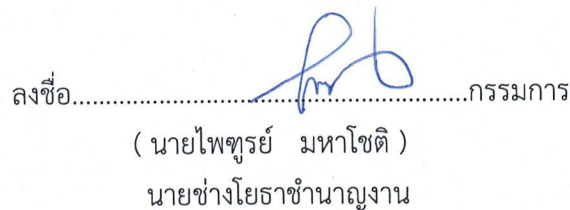 ลงชื่อ....................................................กรรมการ
( นายไพฑูรย์ มหาโชติ )
นายช่างโยธาชำนาญงาน